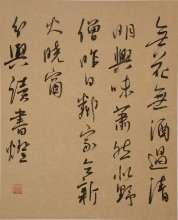 無花無酒過清
明興味蕭然似野
僧昨日鄰家乞新
火曉窗
分與讀書燈